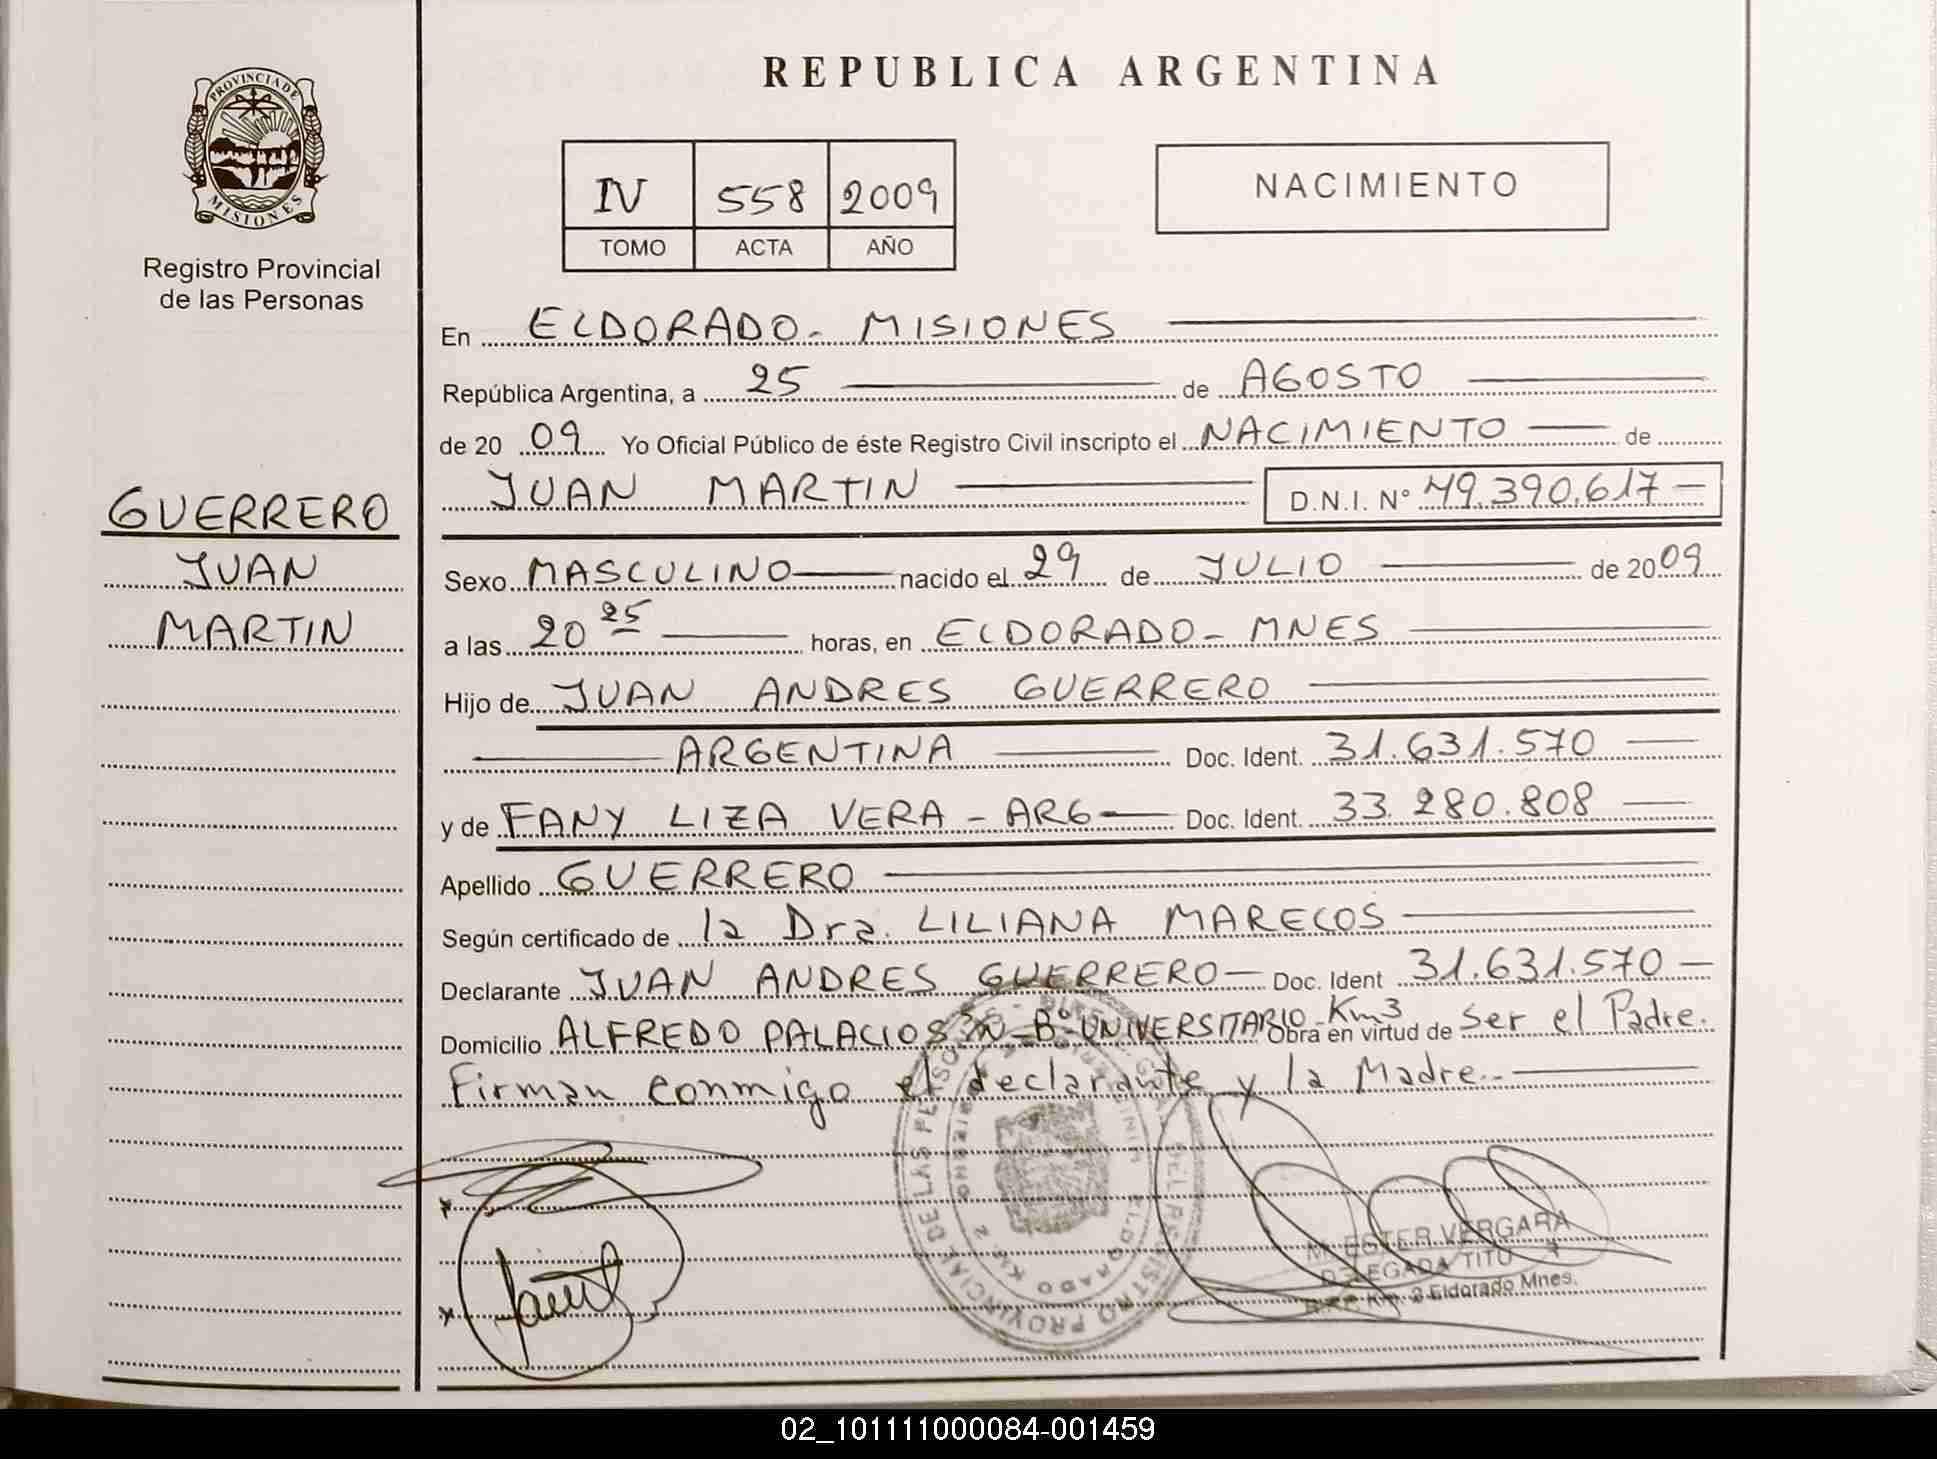 PROVINCIA DE
MISIONES
Registro Provincial
de las Personas
GUERRERO
JUAN
MARTIN
REPUBLICA ARGENTINA
IV 558 2009
TOMO ACTA AÑO
NACIMIENTO
En ELDORADO - MISIONES
República Argentina, a 25 de AGOSTO
de 20 09 Yo Oficial Público de éste Registro Civil inscripto el NACIMIENTO de
JUAN MARTIN D.N.I. Nº 49.390.617
Sexo MASCULINO nacido el 29 de JULIO de 2009
a las 20 25 horas, en ELDORADO - MNES
Hijo de JUAN ANDRES GUERRERO
ARGENTINA Doc. Ident. 31.631.570
y de FANY LIZA VERA - ARG Doc. Ident. 33.280.808
Apellido GUERRERO
Según certificado de la Dra. LILIANA MARECOS
Declarante JUAN ANDRES GUERRERO Doc. Ident 31.631.570
Domicilio ALFREDO PALACIOS S/N - Bº UNIVERSITARIO - Km3 Obra en virtud de ser el Padre.
Firman conmigo el declarante y la Madre.
M. ESTER VERGARA
Km. 2 Eldorado Mnes.
02_101111000084-001459